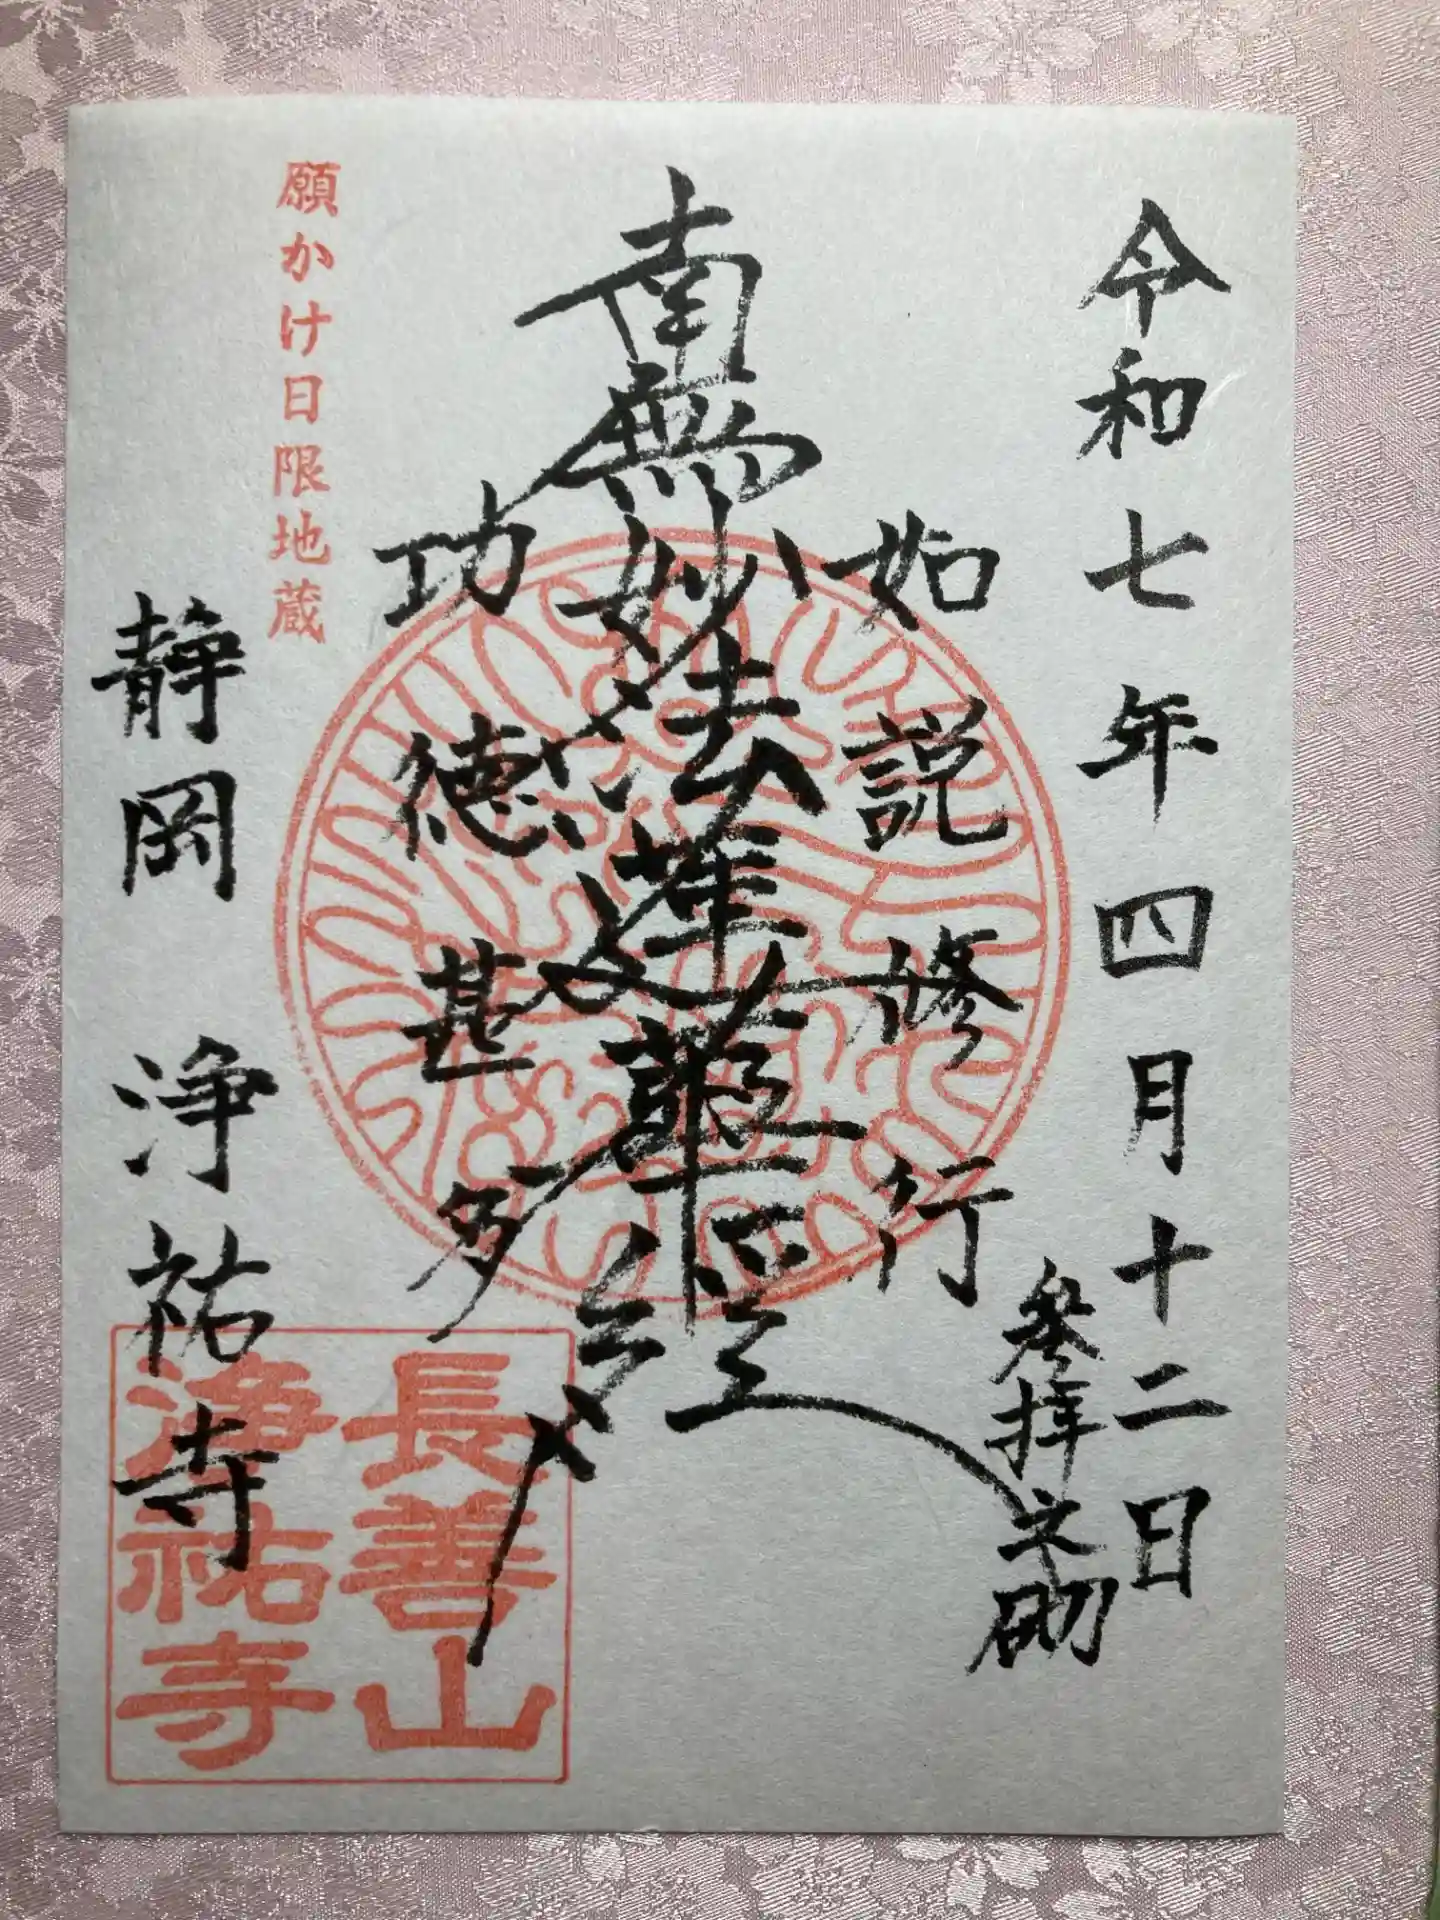 令和七年四月十二日
参拝之砌
如説修行
南無妙法蓮華経
功徳甚多
願かけ日限地蔵
静岡 浄祐寺
長善山
浄祐寺